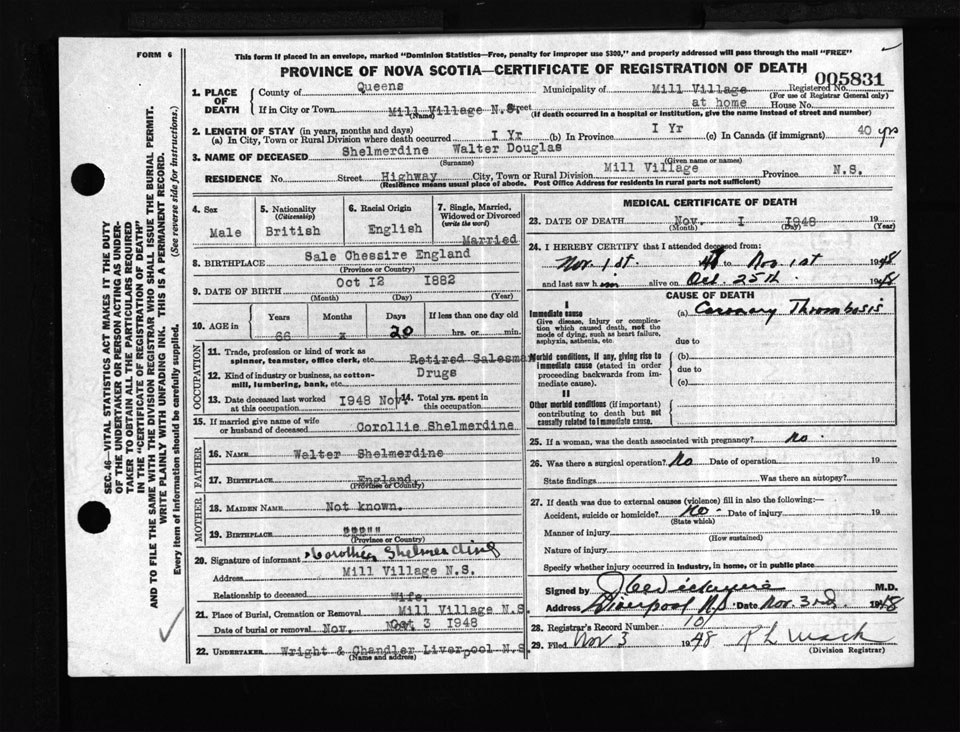 FORM 6
This form if placed in an envelope, marked "Dominion Statistics—Free, penalty for improper use $300," and properly addressed will pass through the mail "FREE"
PROVINCE OF NOVA SCOTIA—CERTIFICATE OF REGISTRATION OF DEATH
005831
1. PLACE OF DEATH County of Queens Municipality of Mill Village Registered No.
(For use of Registrar General only)
If in City or Town Mill Village N.S. Street at home House No.
(Name) (If death occurred in a hospital or institution, give the name instead of street and number)
2. LENGTH OF STAY (in years, months and days)
(a) In City, Town or Rural Division where death occurred I Yr (b) In Province I Yr (c) In Canada (if immigrant) 40 yrs
3. NAME OF DECEASED Shelmerdine Walter Douglas
(Surname) (Given name or names)
RESIDENCE No. Street Highway City, Town or Rural Division Mill Village Province N.S.
(Residence means usual place of abode. Post Office Address for residents in rural parts not sufficient)
4. Sex Male
5. Nationality (Citizenship) British
6. Racial Origin English
7. Single, Married, Widowed or Divorced (write the word) Married
8. BIRTHPLACE Sale Chessire England
(Province or Country)
9. DATE OF BIRTH Oct I2 1882
(Month) (Day) (Year)
10. AGE in Years Months Days If less than one day old
66 x 20 hrs. or min.
OCCUPATION
11. Trade, profession or kind of work as spinner, teamster, office clerk, etc. Retired Salesmen
12. Kind of industry or business, as cotton-mill, lumbering, bank, etc. Drugs
13. Date deceased last worked at this occupation I948 Nov 14. Total yrs. spent in this occupation
15. If married give name of wife or husband of deceased Corollie Shelmerdine
FATHER
16. NAME Walter Shelmerdine
17. BIRTHPLACE England.
(Province or Country)
MOTHER
18. MAIDEN NAME Not known.
19. BIRTHPLACE """""
(Province or Country)
20. Signature of informant Shelmerdine
Address Mill Village N.S.
Relationship to deceased Wife.
21. Place of Burial, Cremation or Removal Mill Village N.S.
Date of burial or removal Nov. 3 1948
22. UNDERTAKER Wright & Chandler Liverpool N.S.
(Name and address)
MEDICAL CERTIFICATE OF DEATH
23. DATE OF DEATH Nov. I I948 19
(Month) (Day) (Year)
24. I HEREBY CERTIFY that I attended deceased from:
Nov. 1st. 48 to Nov 1st 1948
and last saw him alive on Oct. 25th 1948
CAUSE OF DEATH
I
Immediate cause
Give disease, injury or complication which caused death, not the mode of dying, such as heart failure, asphyxia, asthenia, etc.
(a) Coronary Thrombosis
due to
Morbid conditions, if any, giving rise to immediate cause (stated in order proceeding backwards from immediate cause).
(b)
due to
(c)
II
Other morbid conditions (if important) contributing to death but not causally related to immediate cause.
25. If a woman, was the death associated with pregnancy? No.
26. Was there a surgical operation? No Date of operation 19
State findings Was there an autopsy?
27. If death was due to external causes (violence) fill in also the following:—
Accident, suicide or homicide? No. Date of injury 19
(State which)
Manner of injury
(How sustained)
Nature of injury
Specify whether injury occurred in industry, in home, or in public place
Signed by M.D.
Address Liverpool N.S. Date Nov. 3rd. 1948
28. Registrar's Record Number 101
29. Filed Nov 3 1948 R L Mack
(Division Registrar)
SEC. 46—VITAL STATISTICS ACT MAKES IT THE DUTY
OF THE UNDERTAKER OR PERSON ACTING AS UNDER-
TAKER TO OBTAIN ALL THE PARTICULARS REQUIRED
IN THE "CERTIFICATE OF REGISTRATION OF DEATH"
AND TO FILE THE SAME WITH THE DIVISION REGISTRAR WHO SHALL ISSUE THE BURIAL PERMIT.
WRITE PLAINLY WITH UNFADING INK. THIS IS A PERMANENT RECORD.
Every item of information should be carefully supplied. (See reverse side for instructions.)